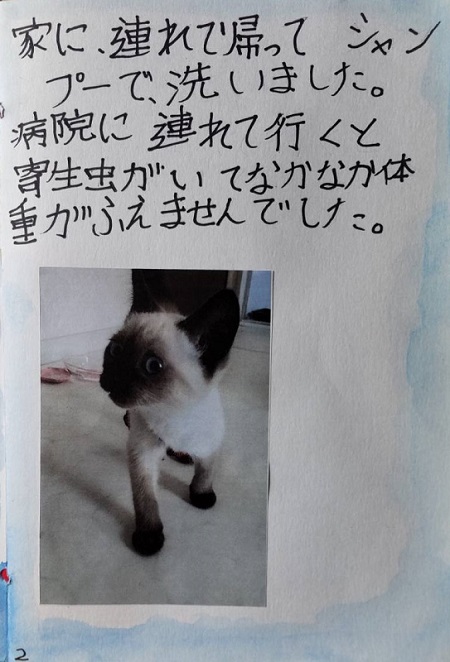 家に、連れて帰って シャン
プーで、洗いました。
病院に 連れて行くと
寄生虫がい てなかなか体
重がふえませんでした。
2